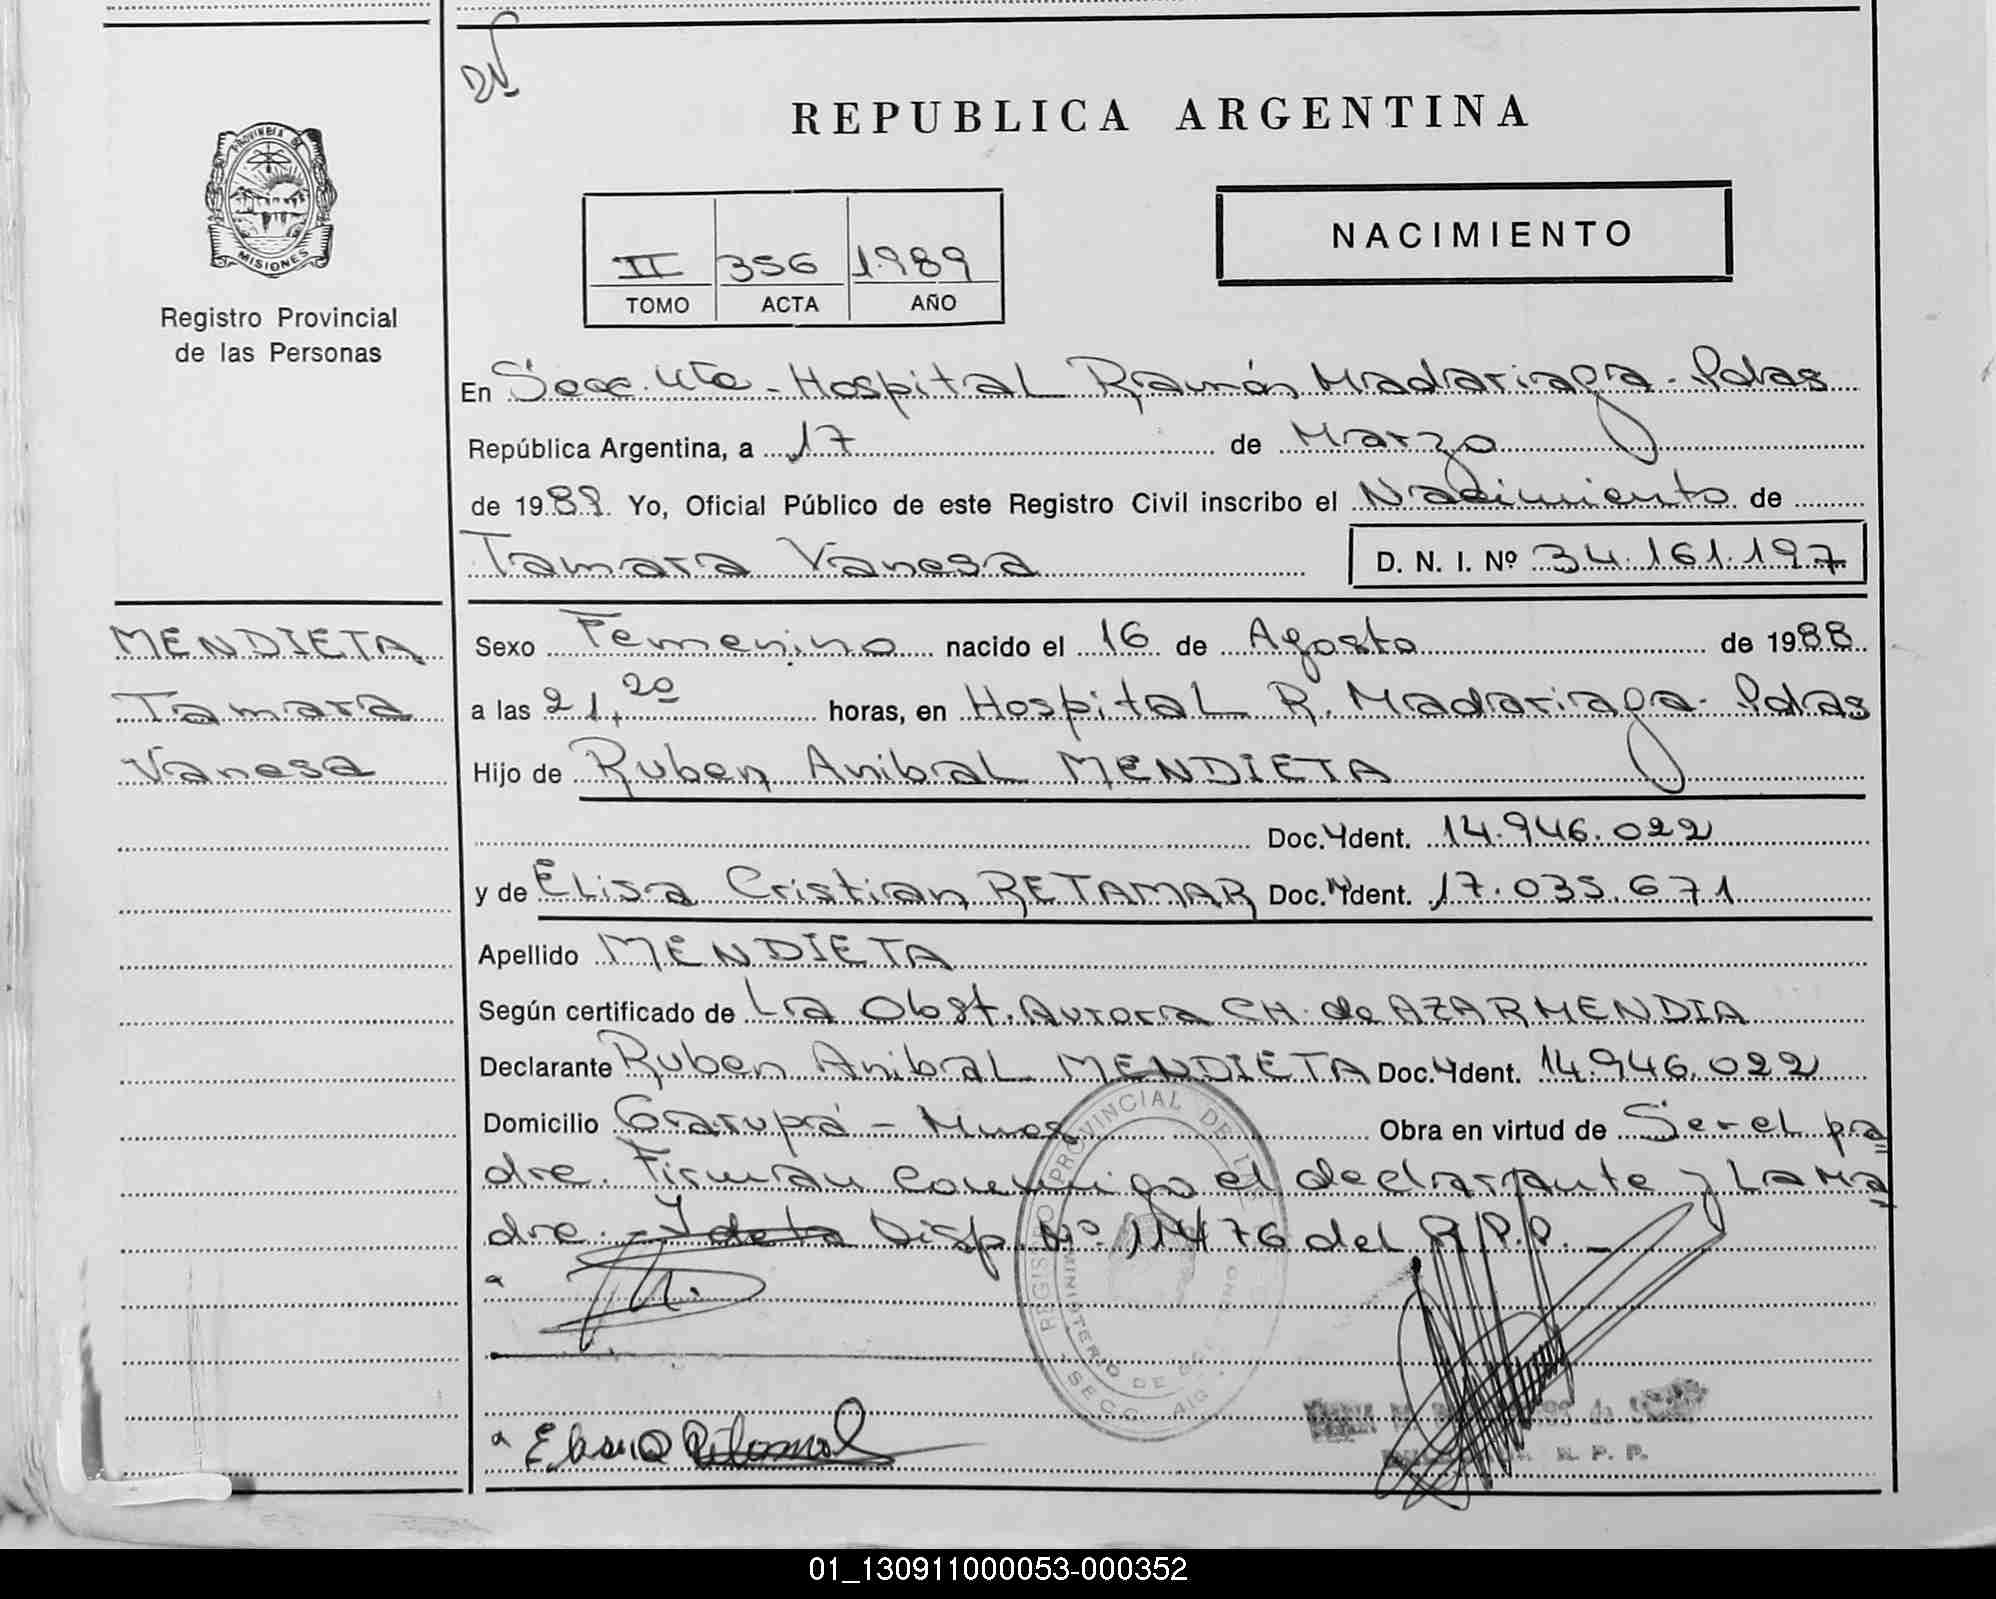 DV
REPUBLICA ARGENTINA
PROVINCIA DE
MISIONES
Registro Provincial
de las Personas
II 356 1.989
TOMO ACTA AÑO
NACIMIENTO
En Secc. Hospital Ramón Madariaga - Pdas
República Argentina, a 17 de Marzo
de 1989. Yo, Oficial Público de este Registro Civil inscribo el Nacimiento de
Tamara Vanesa D. N. I. Nº 34.161.197
MENDIETA
Tamara
Vanesa
Sexo Femenino nacido el 16 de Agosto de 1988
a las 21,20 horas, en Hospital R. Madariaga - Pdas
Hijo de Ruben Anibal MENDIETA
Doc. Ydent. 14.946.022
y de Elisa Cristian RETAMAR Doc. Ydent. 17.035.671
Apellido MENDIETA
Según certificado de La Obst. Aurora CH. de AZARMENDIA
Declarante Ruben Anibal MENDIETA Doc. Ydent. 14.946.022
Domicilio Garupá - Mnes Obra en virtud de Ser el pa
dre. Firman conmigo el declarante y La Ma
dre. - Disp. Nº 114/76 del R.P.P. -
REGISTRO PROVINCIAL DE
MINISTERIO DE
SECC.
R. P. P.
01_130911000053-000352